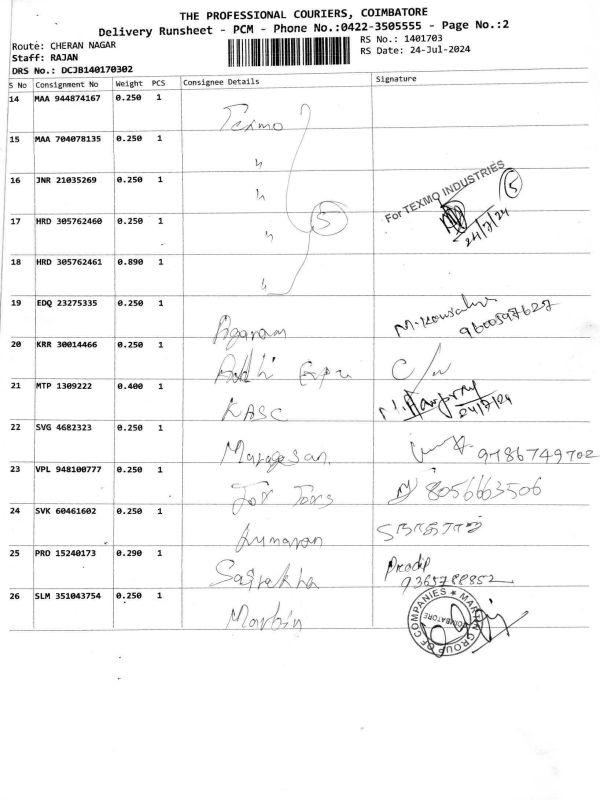 THE PROFESSIONAL COURIERS, COIMBATORE
Delivery Runsheet - PCM - Phone No.:0422-3505555 - Page No.:2
Route: CHERAN NAGAR
RS No.: 1401703
Staff: RAJAN
RS Date: 24-Jul-2024
DRS No.: DCJB140170302
S No Consignment No Weight PCS Consignee Details Signature
14 MAA 944874167 0.250 1 Texmo
15 MAA 704078135 0.250 1 〃
16 JNR 21035269 0.250 1 〃 For TEXMO INDUSTRIES 5
17 HRD 305762460 0.250 1 〃 5 24/7/24
18 HRD 305762461 0.890 1 〃
19 EDQ 23275335 0.250 1 Agaram M. 9600597627
20 KRR 30014466 0.250 1
21 MTP 1309222 0.400 1 KASC 24/7/24
22 SVG 4682323 0.250 1 Murugesan 9786749702
23 VPL 948100777 0.250 1 8056663506
24 SVK 60461602 0.250 1 Kumaran
25 PRO 15240173 0.290 1 Sasirekha Pradip 9365788852
26 SLM 351043754 0.250 1 Martin MARTIN GROUP OF COMPANIES COIMBATORE